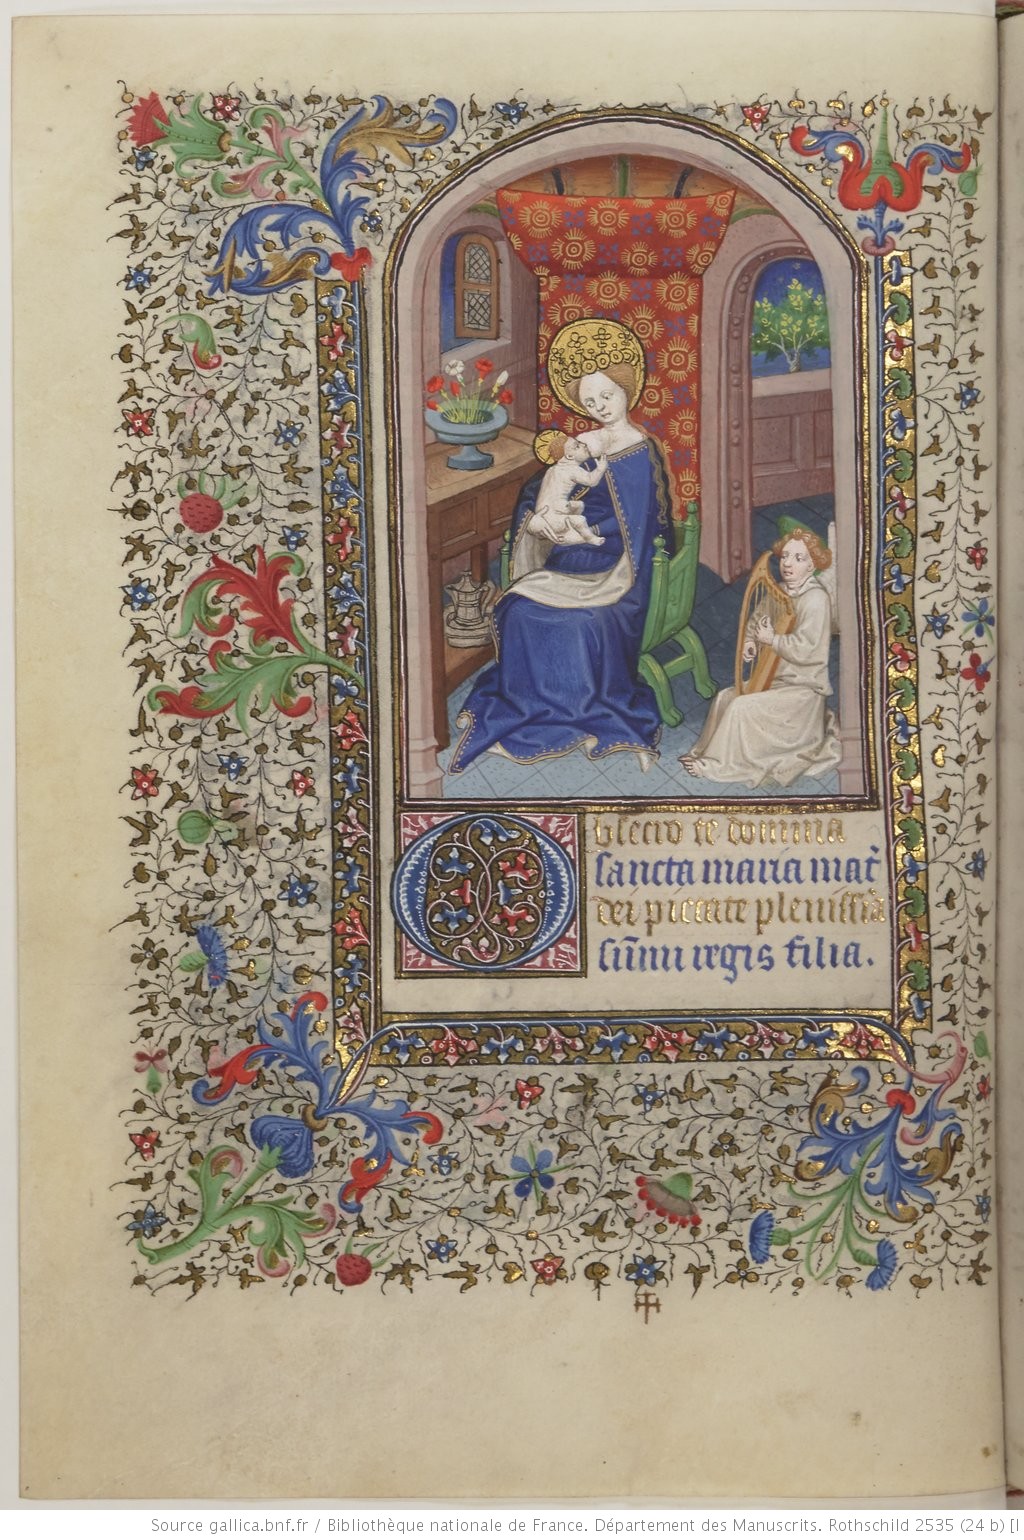 Obsecro te domina
sancta maria mat̃
dei pietate plenissiã
sum̃i regis filia.
Source gallica.bnf.fr / Bibliothèque nationale de France. Département des Manuscrits. Rothschild 2535 (24 b) [I